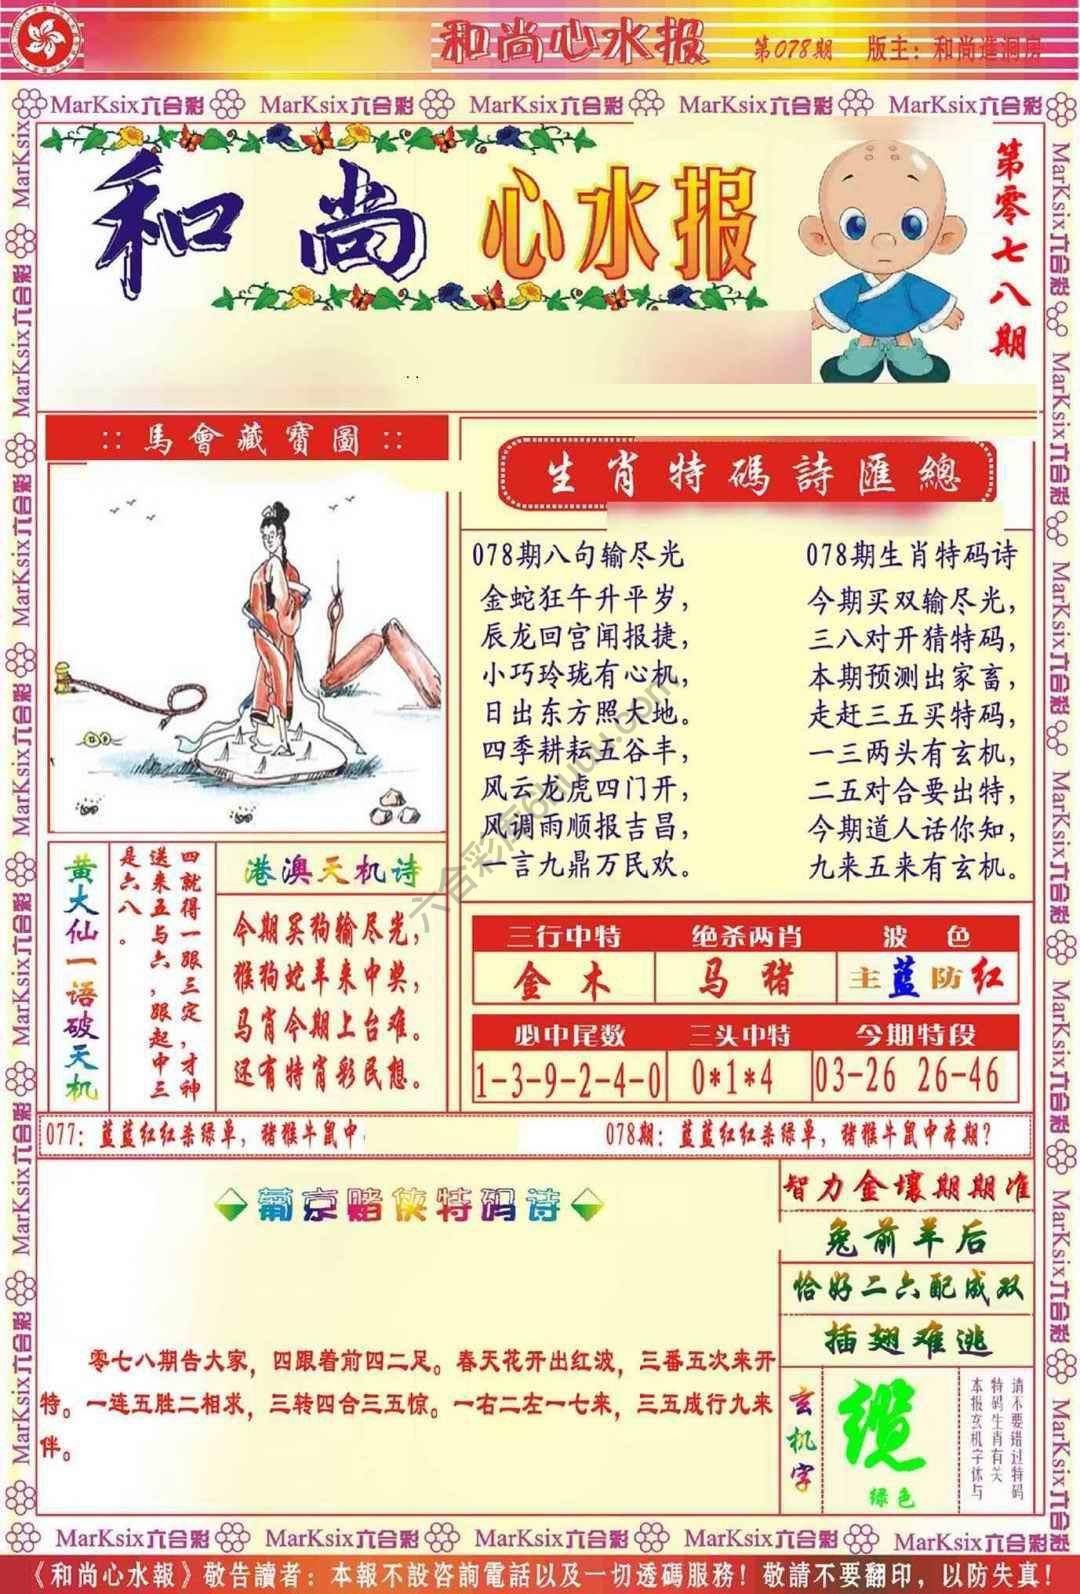 和尚心水报 第078期 版主：和尚進洞房
MarKsix六合彩 MarKsix六合彩 MarKsix六合彩 MarKsix六合彩 MarKsix六合彩
和尚 心水报
第零七八期
:: 馬會藏寶圖 ::
生肖特碼詩匯總
078期八句输尽光
金蛇狂午升平岁，
辰龙回宫闻报捷，
小巧玲珑有心机，
日出东方照大地。
四季耕耘五谷丰，
风云龙虎四门开，
风调雨顺报吉昌，
一言九鼎万民欢。
078期生肖特码诗
今期买双输尽光，
三八对开猜特码，
本期预测出家畜，
走赶三五买特码，
一三两头有玄机，
二五对合要出特，
今期道人话你知，
九来五来有玄机。
六合彩库6huuu.com
黄大仙一语破天机
四就得一跟三定，才神
送来五与六，跟起中三
是六八。
港澳天机诗
今期买狗输尽光，
猴狗蛇羊来中奖，
马肖今期上台难。
还有特肖彩民想。
三行中特 绝杀两肖 波色
金木 马猪 主蓝防红
必中尾数 三头中特 今期特段
1-3-9-2-4-0 0*1*4 03-26 26-46
077：蓝蓝红红杀绿单，猪猴牛鼠中
078期：蓝蓝红红杀绿单，猪猴牛鼠中本期？
葡京赌侠特码诗
零七八期告大家，四跟着前四二足。春天花开出红波，三番五次来开
特。一连五胜二相求，三转四合三五惊。一右二左一七来，三五成行九来
伴。
智力金壤期期准
兔前羊后
恰好二六配成双
插翅难逃
玄机字
缆
绿色
请不要错过特码
特码生肖有关
本报玄机字体与
MarKsix六合彩 MarKsix六合彩 MarKsix六合彩 MarKsix六合彩 MarKsix六合彩
《和尚心水報》敬告讀者：本報不設咨詢電話以及一切透碼服務！敬請不要翻印，以防失真！